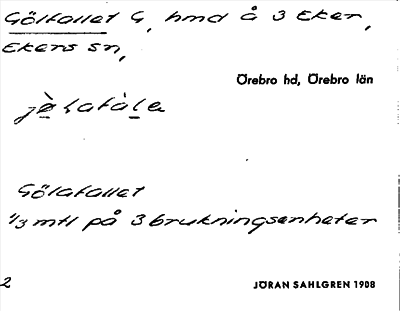 Gölfallet G, hmd å 3 Eker,
Ekers sn,
Örebro hd, Örebro län
Gölafallet
1/3 mtl på 3 brukningsenheter
2
JÖRAN SAHLGREN 1908